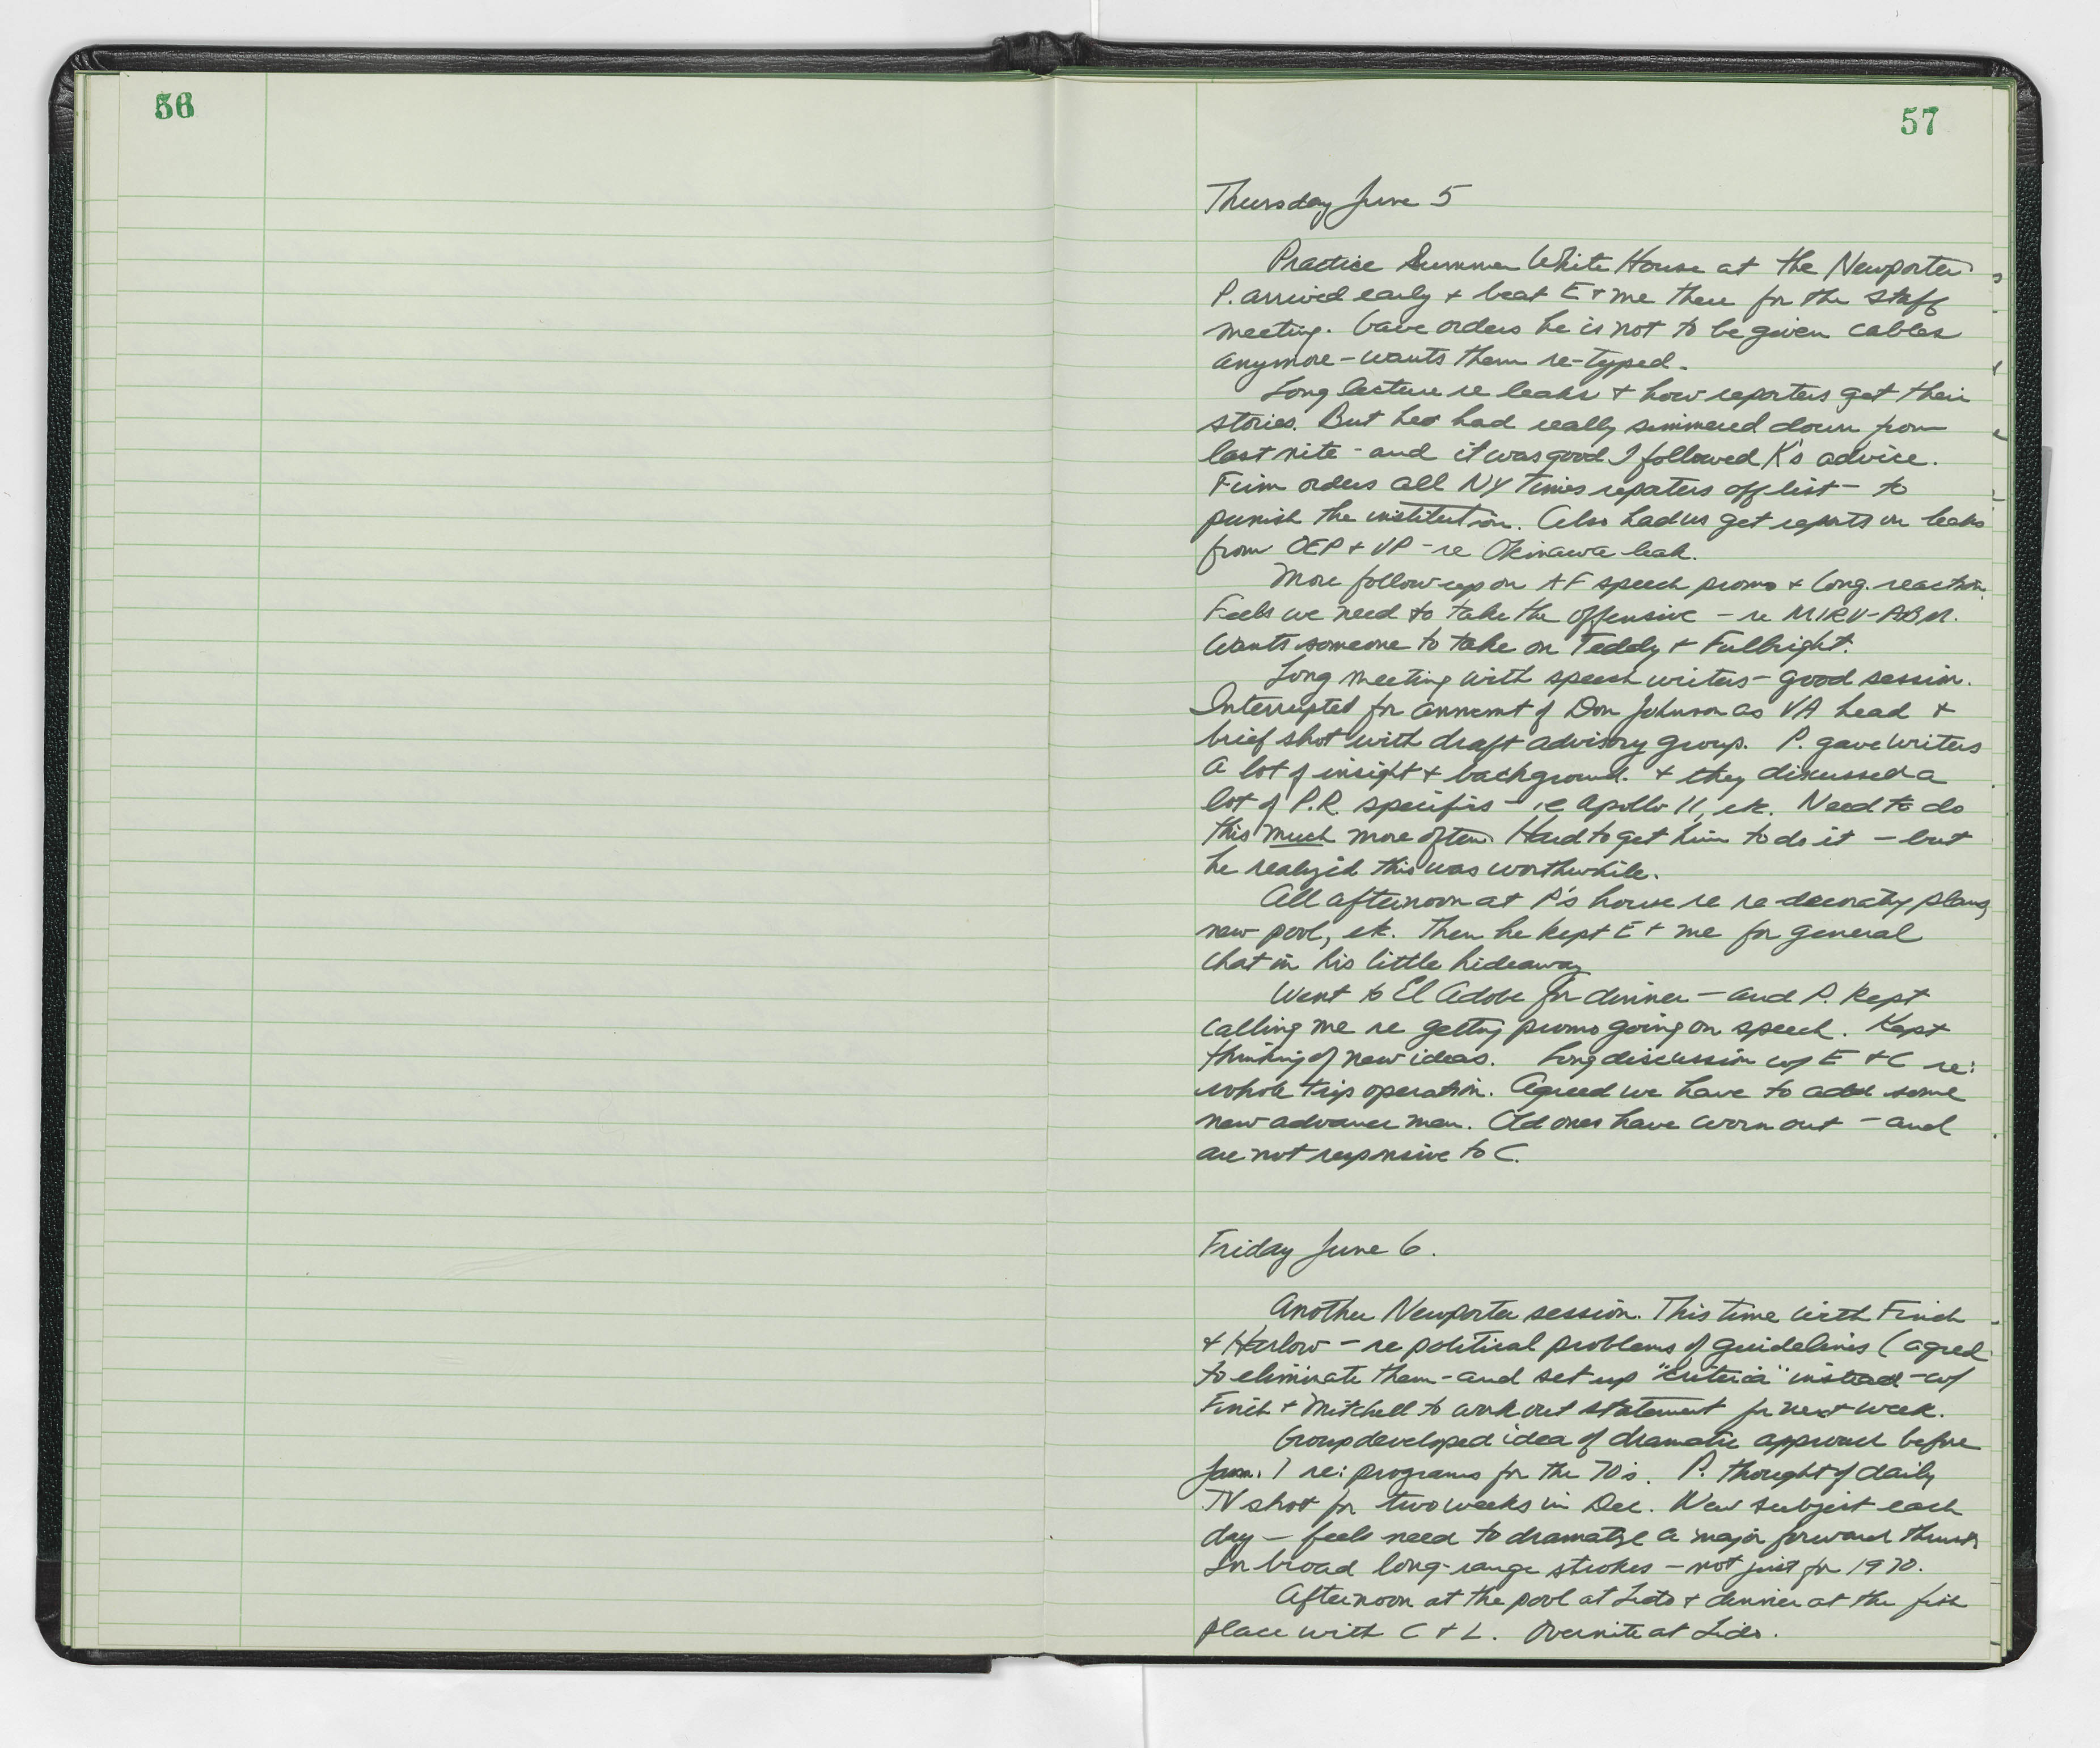 56
57
Thursday June 5
Practice Summer White House at the Newporter
P. arrived early + beat E + me there for the staff
meeting. Gave orders he is not to be given cables
anymore – wants them re-typed.
Long lecture re leaks + how reporters get their
stories. But he had really simmered down from
last nite – and it was good I followed K's advice.
Firm orders all NY Times reporters off list – to
punish the institution. Also had us get reports on leaks
from OEP + VP – re Okinawa leak.
More follow up on AF speech promo + Cong. reaction.
Feels we need to take the offensive – re MIRV-ABM.
Wants someone to take on Teddy + Fulbright.
Long meeting with speech writers – good session.
Interrupted for anncmt of Don Johnson as VA head +
brief shot with draft advisory group. P. gave writers
a lot of insight + background. + they discussed a
lot of P.R. specifics – re Apollo 11, etc. Need to do
this much more often. Hard to get him to do it – but
he realized this was worthwhile.
All afternoon at P's house re re-decorating plans,
new pool, etc. Then he kept E + me for general
chat in his little hideaway
Went to El Adobe for dinner – and P. kept
calling me re getting promo going on speech. Kept
thinking of new ideas. Long discussion w/ E + C re:
whole trip operation. Agreed we have to add some
new advance men. Old ones have worn out – and
are not responsive to C.
Friday June 6.
Another Newporter session. This time with Finch
+ Harlow – re political problems of guidelines (agreed
to eliminate them – and set up "criteria" instead – w/
Finch + Mitchell to work out statement for next week.
Group developed idea of dramatic approach before
Jan. 1 re: programs for the 70's. P. thought of daily
TV shot for two weeks in Dec. New subject each
day – feels need to dramatize a major forward thrust
In broad long-range strokes – not just for 1970.
Afternoon at the pool at Lido + dinner at the fish
place with C + L. Overnite at Lido.